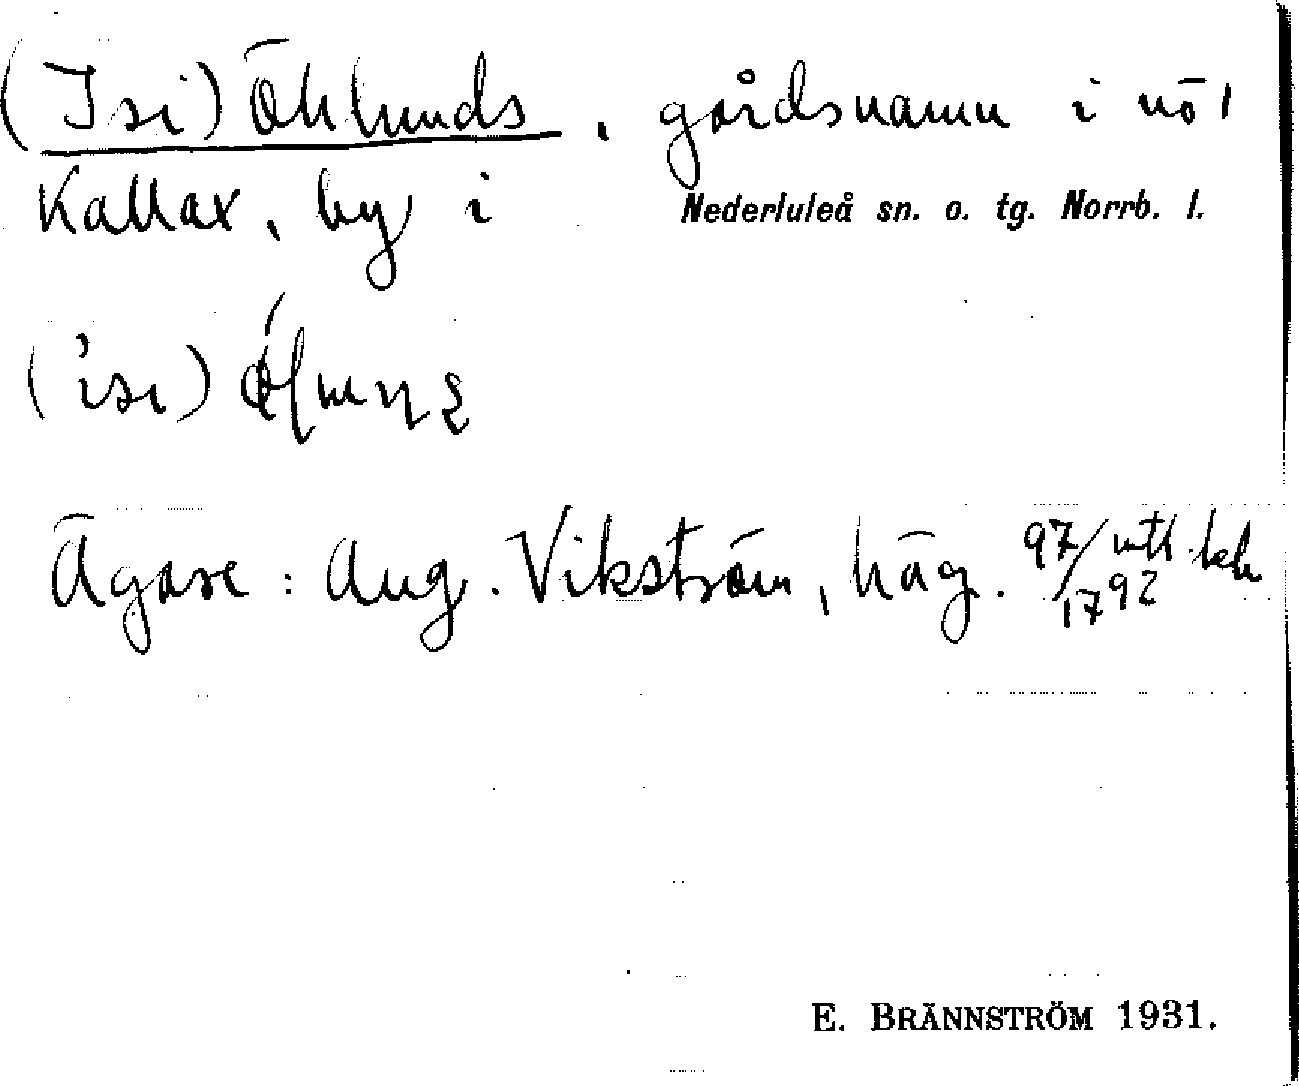 (Isi) Öhlunds, gårdsnamn i nö
Kallax, by i Nederluleå sn. o. tg. Norrb. l.
(isi)
Ägare: Aug. Vikström, häg. 97/1792 mtl
E. BRÄNNSTRÖM 1931.